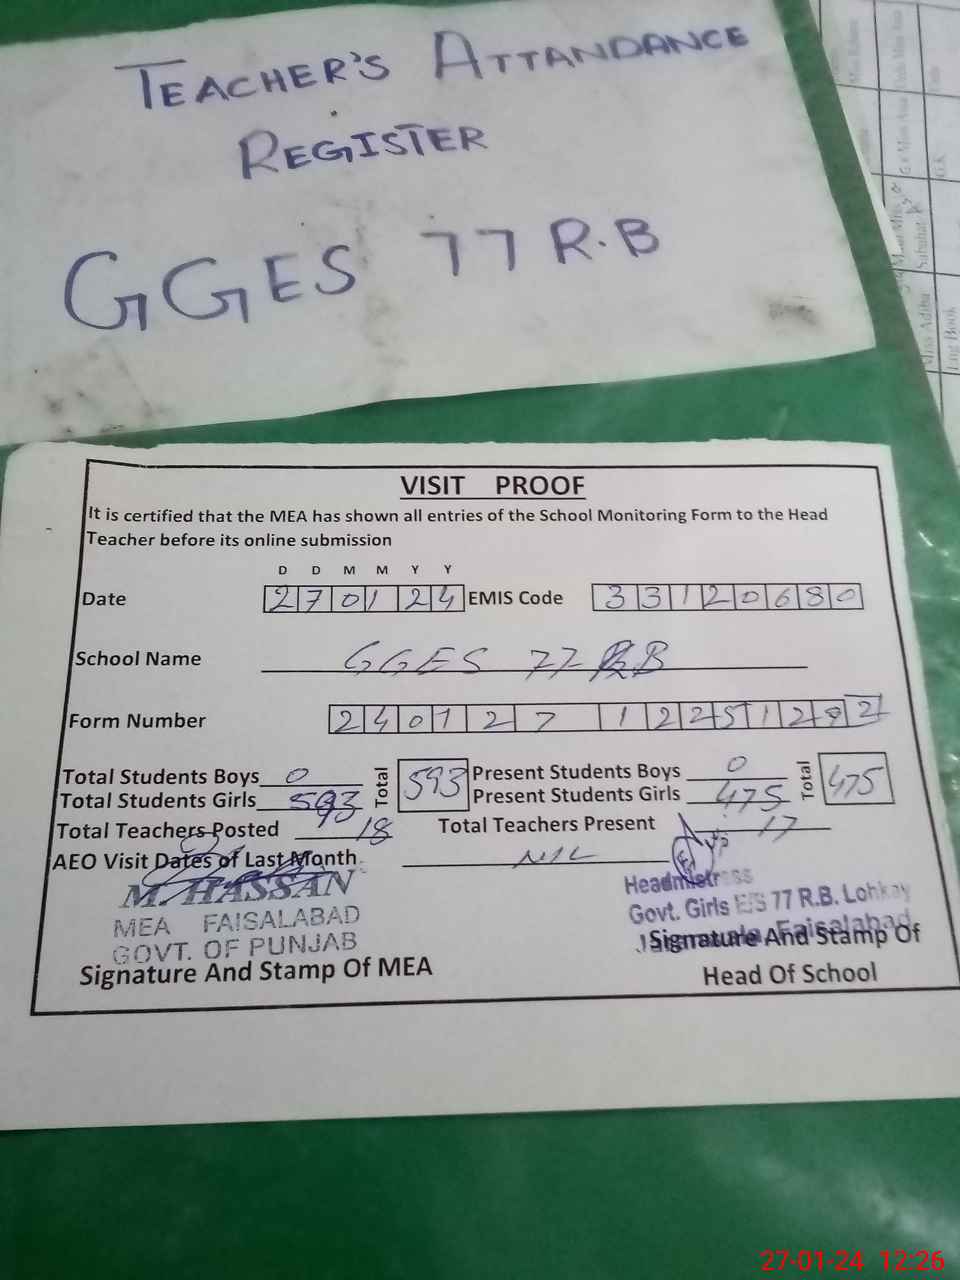 TEACHER'S ATTANDANCE
REGISTER
GGES 77 R.B
VISIT PROOF
It is certified that the MEA has shown all entries of the School Monitoring Form to the Head
Teacher before its online submission
D D M M Y Y
Date 270124 EMIS Code 33120680
School Name GGES 77 RB
Form Number 240127 122512
Total Students Boys 0 Total 593 Present Students Boys 0 Total 475
Total Students Girls 593 Present Students Girls 475
Total Teachers Posted 18 Total Teachers Present 17
AEO Visit Dates of Last Month NIL
M. HASSAN
MEA FAISALABAD
GOVT. OF PUNJAB
Signature And Stamp Of MEA
Headmistress
Govt. Girls E/S 77 R.B. Lohkay
Faisalabad
Signature And Stamp Of
Head Of School
Miss Adiba
Log Book
Sabahat
27-01-24 12:26